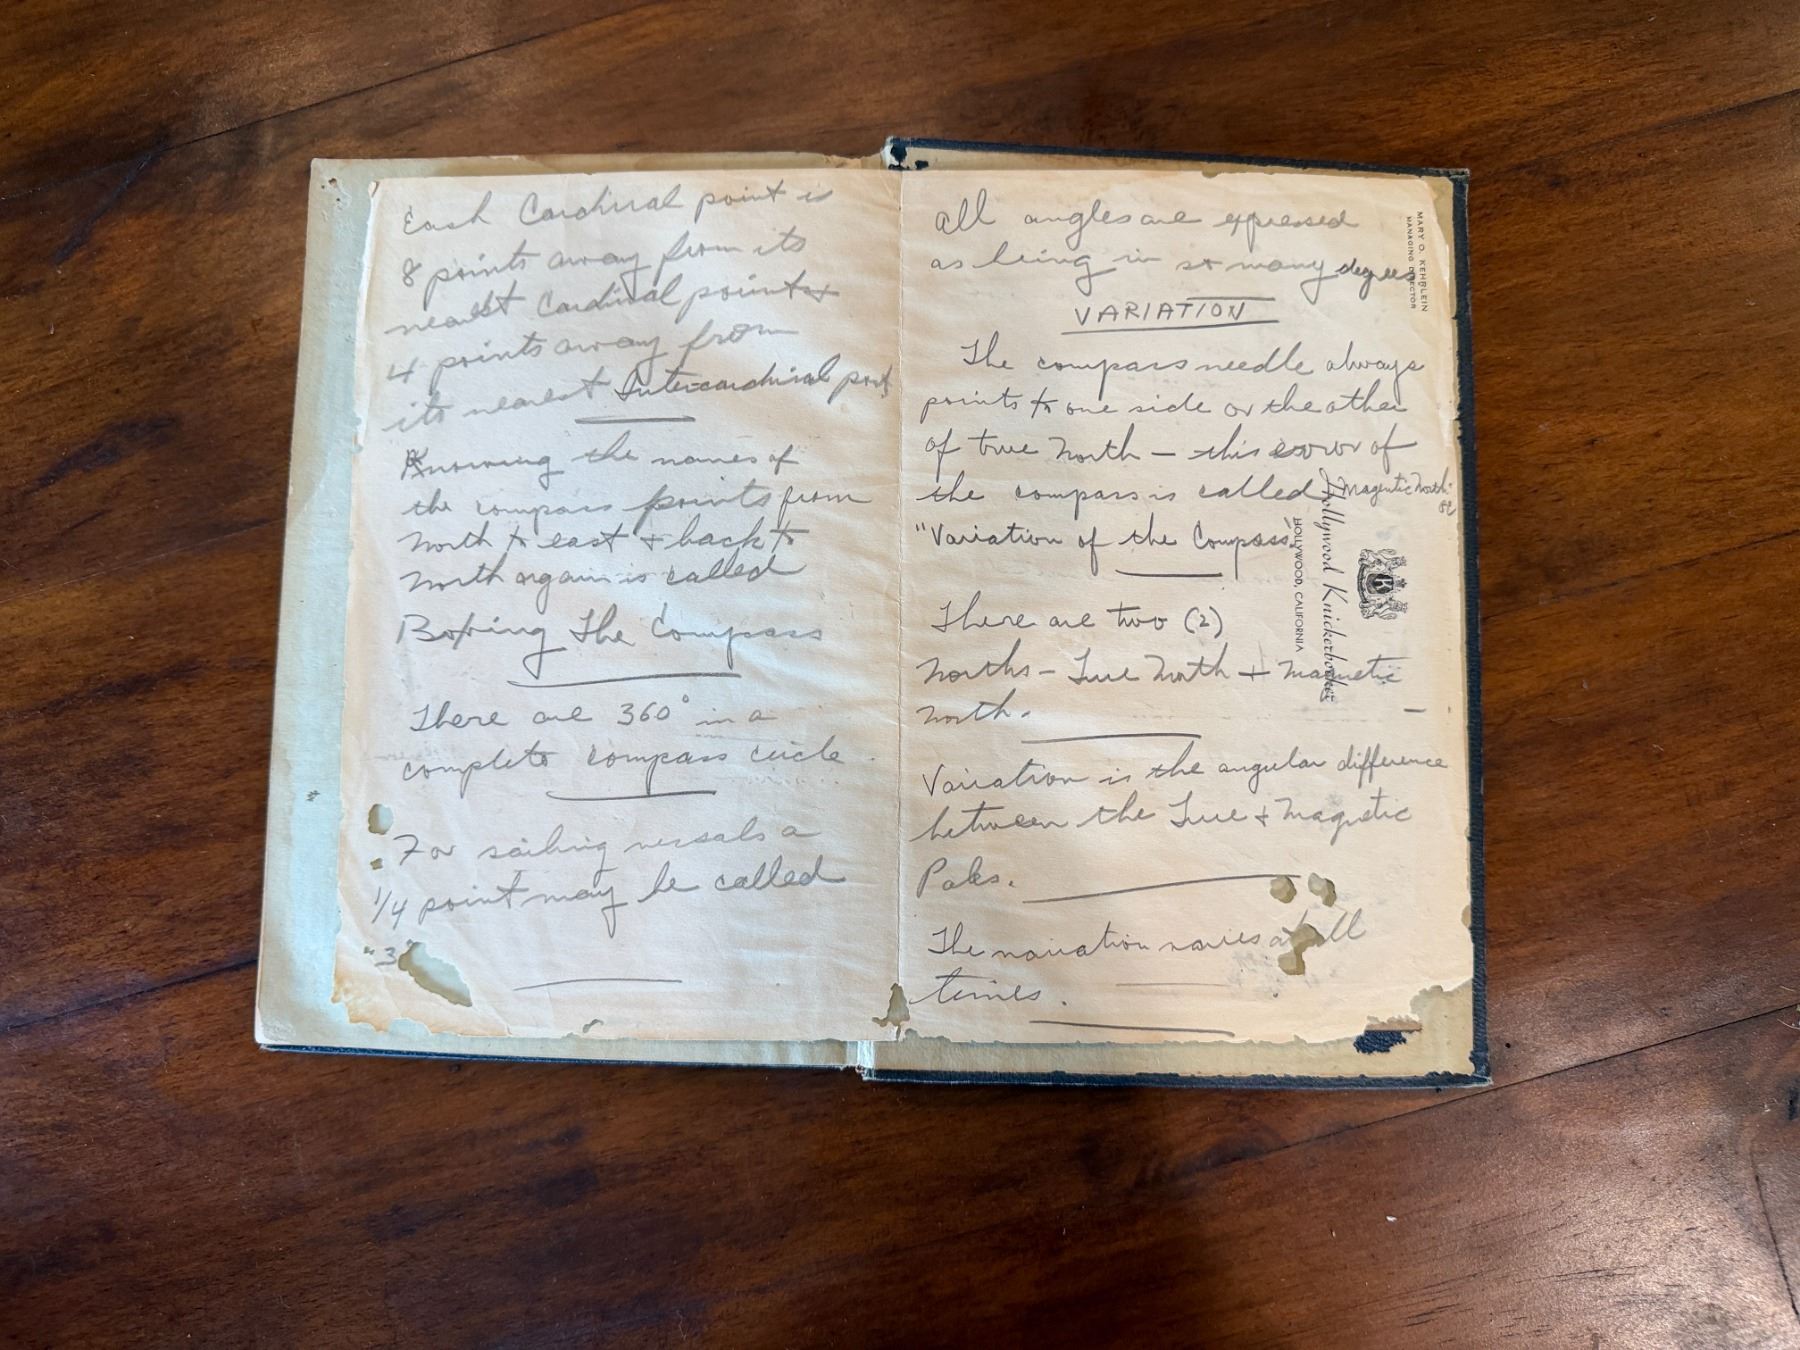 Each Cardinal point is
8 points away from its
nearest Cardinal point +
4 points away from
its nearest Intercardinal point
Knowing the names of
the compass points from
North to east + back to
North again is called
Boxing The Compass
There are 360° in a
complete compass circle.
For sailing vessels a
1/4 point may be called
"3
All angles are expressed
as being in so many degrees
VARIATION
The compass needle always
points to one side or the other
of true North — this error of
the compass is called Magnetic North or
"Variation of the Compass".
There are two (2)
Norths - True North + Magnetic
North.
Variation is the angular difference
between the True + Magnetic
Poles.
The variation varies at all
times.
MARY O. KEHRLEIN
MANAGING DIRECTOR
Hollywood Knickerbocker
HOLLYWOOD, CALIFORNIA